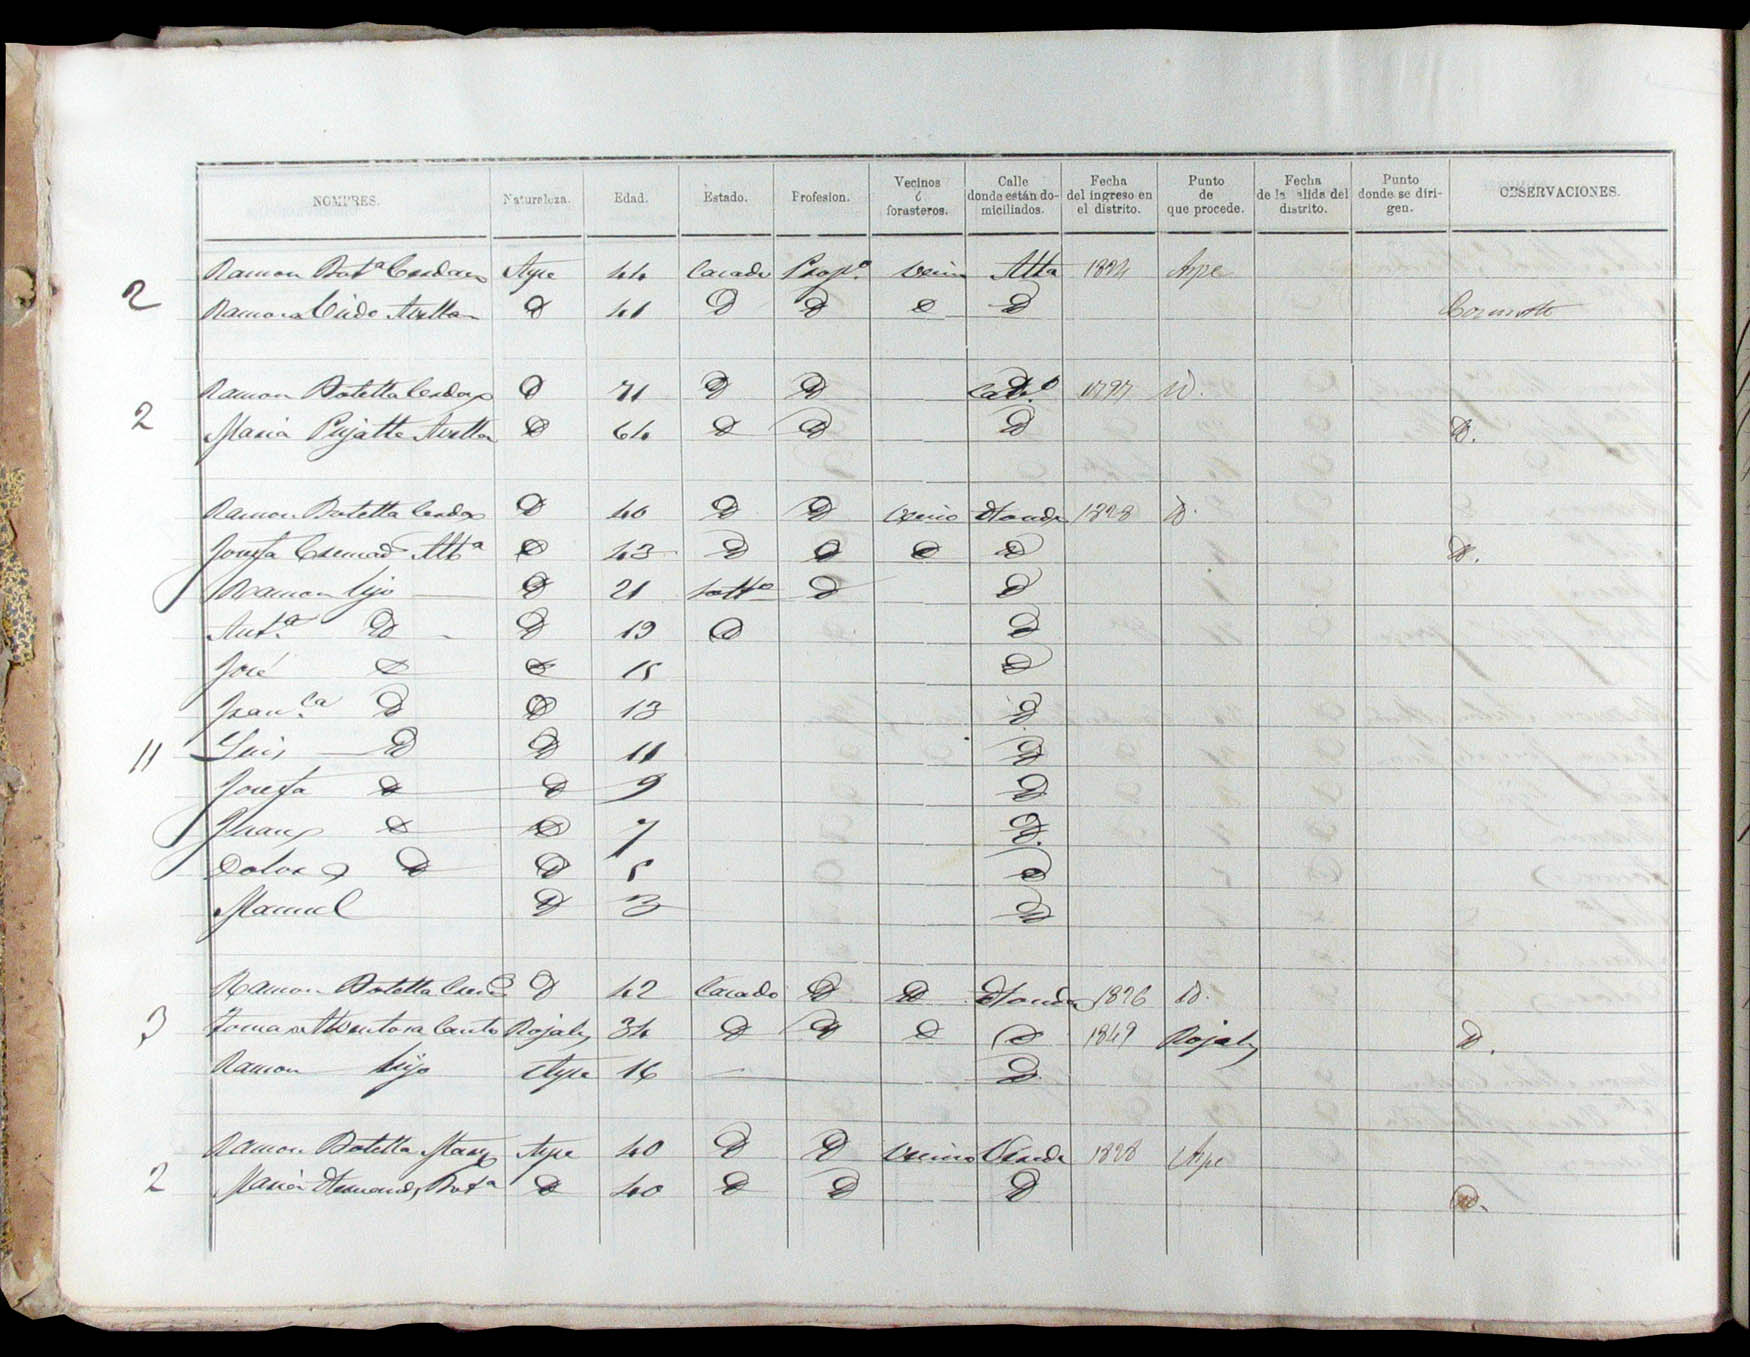 NOMBRES. Naturaleza. Edad. Estado. Profesion. Vecinos ó forasteros. Calle donde están domiciliados. Fecha del ingreso en el distrito. Punto de que procede. Fecha de la salida del distrito. Punto donde se dirigen. OBSERVACIONES.
Ramon Botª Cerdan Aspe 44 Casado Propº Vecino Alta 1824 Aspe
2
Ramona Avellan D 41 D D D D
Ramon Botella Cerdan D 71 D D 1797 D.
2
Maria Pujalte Avellan D 64 D D D D.
Ramon Botella Cerdan D 40 D D Vecino Honda 1828 D.
Josefa Cremad Albª D 43 D D D D D.
Ramon hijo D 21 Soltº D D
Antª D D 19 D D
José D D 15 D
Franca D D 13 D
11
Luis D D 11 D
Josefa D D 9 D
Juan D D 7 D.
Dolores D D 5 D
Manuel D 3 D
Ramon Botella D 42 Casado D D Honda 1826 D.
3
Tomasa Cantó Rojales 34 D D D D 1849 Rojales D.
Ramon hijo Aspe 16 D
Ramon Botella Aspe 40 D D Vecino 1828 Aspe
2
Maria Botª D 40 D D D D.